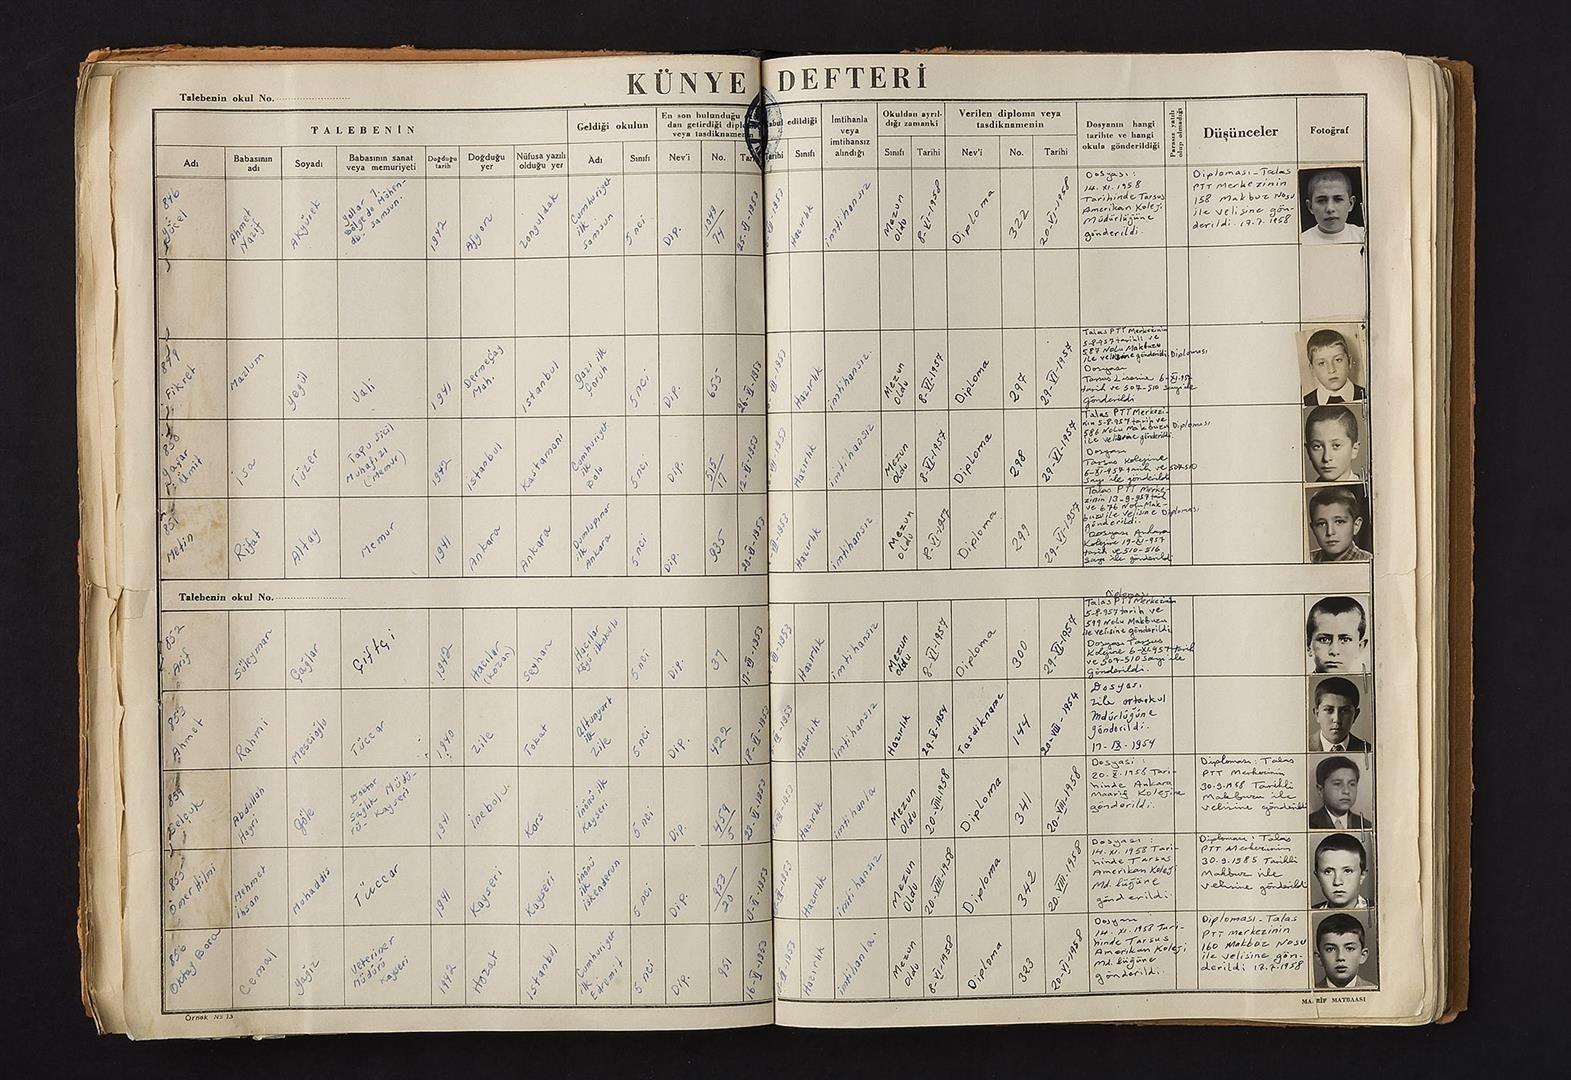 KÜNYE DEFTERİ
Talebenin okul No.
TALEBENİN
Geldiği okulun
En son bulunduğu
dan getirdiği
veya tasdiknamenin
edildiği
İmtihanla
veya
imtihansız
alındığı
Okuldan ayrıl-
dığı zamanki
Verilen diploma veya
tasdiknamenin
Dosyanın hangi
tarihte ve hangi
okula gönderildiği
Parasız yatılı
olup olmadığı
Düşünceler
Fotoğraf
Adı
Babasının
adı
Soyadı
Babasının sanat
veya memuriyeti
Doğduğu
tarih
Doğduğu
yer
Nüfusa yazılı
olduğu yer
Adı
Sınıfı
Nev'i
No.
Tarihi
Sınıfı
Sınıfı
Tarihi
Nev'i
No.
Tarihi
846
Ahmet
Akyürek
1942
Zonguldak
Cumhuriyet
ilk
Samsun
5 nci
Dip.
Hazırlık
imtihansız
Mezun
oldu
8-VI-1958
Diploma
322
20-VI-1958
Dosyası:
14. XI. 1958
Tarihinde Tarsus
Amerikan Koleji
Müdürlüğüne
gönderildi.
Diploması - Talas
PTT Merkezinin
158 Makbuz Nosu
ile velisine gön-
derildi. 17.7.1958
849
Fikret
Mazlum
Yegül
Vali
1941
Mah.
İstanbul
Gazi ilk
Çoruh
5 nci
Dip.
653-
26-VI-1953
Hazırlık
imtihansız.
Mezun
oldu
8-VI-1957
Diploma
297
29-VI-1957
Talas PTT Merkezinin
5-8-957 tarihli ve
587 Nolu Makbuzu
ile velisine gönderildi Diploması
Dosyası
Tarsus Lisesine 6-XI-957
tarih ve 507-510 sayı ile
gönderildi
850
Yaşar
Ümit
İsa
Tüzer
Tapu Sicil
Muhafızı
(Memur)
1942
İstanbul
Kastamoni
Cumhuriyet
ilk
Bolu
5 nci
Dip.
12-VI-1953
Hazırlık
imtihansız
Mezun
oldu
8-VI-1957
Diploma
298
29-VI-1957
Talas PTT Merkezi-
nin 5-8-957 tarih ve
586 Nolu Makbuzu Diploması
ile velisine gönderildi.
Dosyası
Tarsus Kolejine
6-XI-957 tarih ve 507-510
sayı ile gönderildi
851
Metin
Rifat
Altay
Memur
1941
Ankara
Ankara
Dumlupınar
ilk
Ankara
5 nci
Dip.
935-
20-VI-1953
Hazırlık
imtihansız
Mezun
oldu
8-VI-1957
Diploma
299
29-VI-1957
Talas PTT Merke-
zinin 13-9-957 tarih
ve 676 Nolu Mak-
buzu ile velisine Diploması
gönderildi.
Dosyası Ankara
Kolejine 19-XI-957
tarih ve 510-516
sayı ile gönderildi
Talebenin okul No.
852
Arif
Süleyman
Çağlar
Çiftçi
1942
Hacılar
(Kozan)
Seyhan
Hacılar
Köyü ilkokulu
5 nci
Dip.
37
Hazırlık
imtihansız
Mezun
oldu
8-VI-1957
Diploma
300
29-VI-1957
Diploması
Talas PTT Merkezinin
5-8-957 tarih ve
599 Nolu Makbuzu
ile velisine gönderildi
Dosyası Tarsus
Kolejine 6-XI-957 tarih
ve 507-510 sayı ile
gönderildi.
853
Ahmet
Rahmi
Mescioğlu
Tüccar
1940
Zile
Tokat
Altunyurt
ilk
Zile
5 nci
Dip.
422
18-VI-1953
Hazırlık
imtihansız
Hazırlık
29-VI-1954
Tasdikname
144
20-VIII-1954
Dosyası
Zile ortaokul
Müdürlüğüne
gönderildi
17-IX-1954
854
Selçuk
Abdullah
Hayri
Göle
Doktor
Sağlık Müdü-
rü - Kayseri
1941
İnebolu
Kars
İnönü ilk
Kayseri
5 nci
Dip.
459
5
Hazırlık
imtihanla
Mezun
oldu
20-VIII-1958
Diploma
341
20-VIII-1958
Dosyası:
20. X. 1958 Tari-
hinde Ankara
Maarif Kolejine
gönderildi.
Diploması: Talas
PTT Merkezinin
30-9-1958 Tarihli
Makbuzu ile
velisine gönderildi
855
Ömer Hilmi
Mehmet
İhsan
Muhaddis
Tüccar
1941
Kayseri
Kayseri
İnönü
ilk
İskenderun
5 nci
Dip.
953
20
Hazırlık
imtihansız
Mezun
Oldu
20-VIII-1958
Diploma
342
20-VIII-1958
Dosyası:
14. XI. 1958 Tari-
hinde Tarsus
Amerikan Koleji
Md. lüğüne
gönderildi.
Diploması: Talas
PTT Merkezinin
30.9.1985 Tarihli
Makbuz ile
velisine gönderildi
856
Oktay Bora
Cemal
Yağız
Veteriner
Müdürü
Kayseri
1942
Hozat
İstanbul
Cumhuriyet
ilk
Edremit
5 nci
Dip.
451
16-VI-1953
Hazırlık
imtihanla.
Mezun
Oldu
8-VI-1958
Diploma
323
20-VI-1958
Dosyası
14. XI. 1958 Tari-
hinde Tarsus
Amerikan Koleji
Md. lüğüne
gönderildi.
Diploması - Talas
PTT merkezinin
160 Makbuz Nosu
ile velisine gön-
derildi 17.7.1958
Örnek No 13
MAARİF MATBAASI